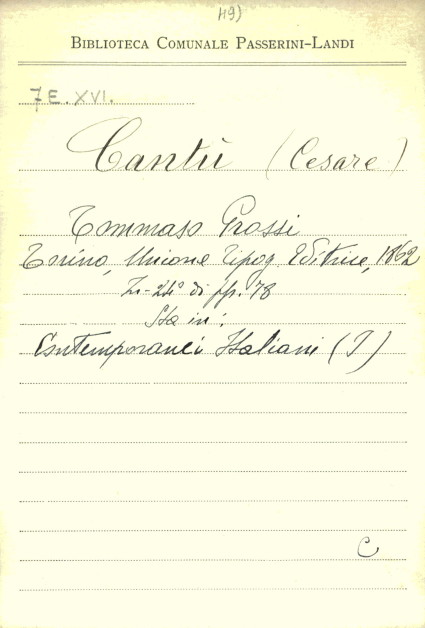 49)
BIBLIOTECA COMUNALE PASSERINI-LANDI
7 E. XVI.
Cantù (Cesare)
Tommaso Grossi
Torino, Unione Tipog Editrice, 1862
in-24° di pp. 78
Sta in:
Contemporanei Italiani (I)
C